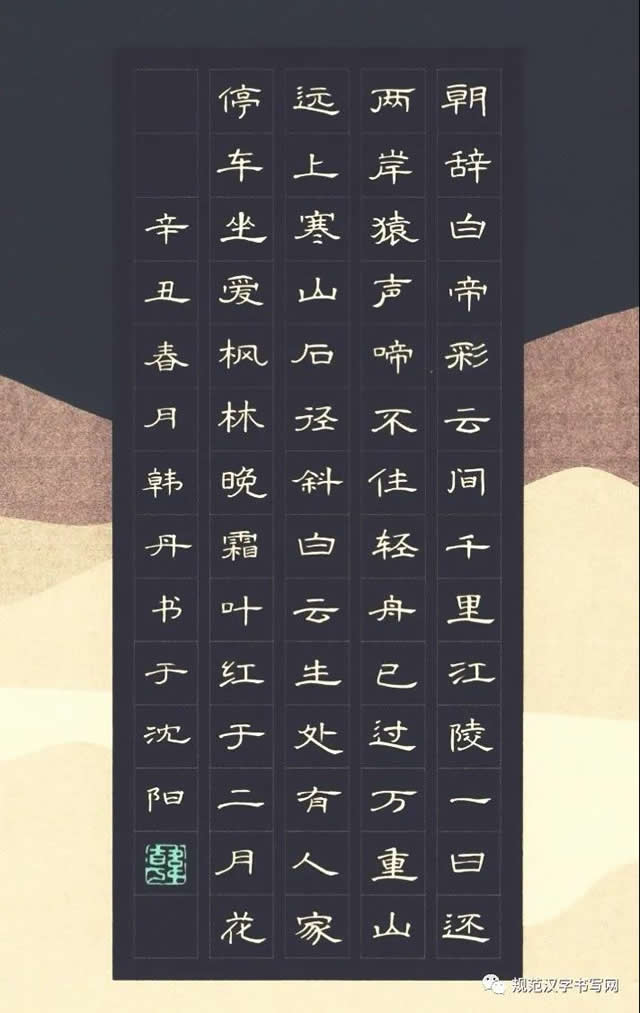 朝辞白帝彩云间千里江陵一日还
两岸猿声啼不住轻舟已过万重山
远上寒山石径斜白云生处有人家
停车坐爱枫林晚霜叶红于二月花
辛丑春月韩丹书于沈阳
规范汉字书写网